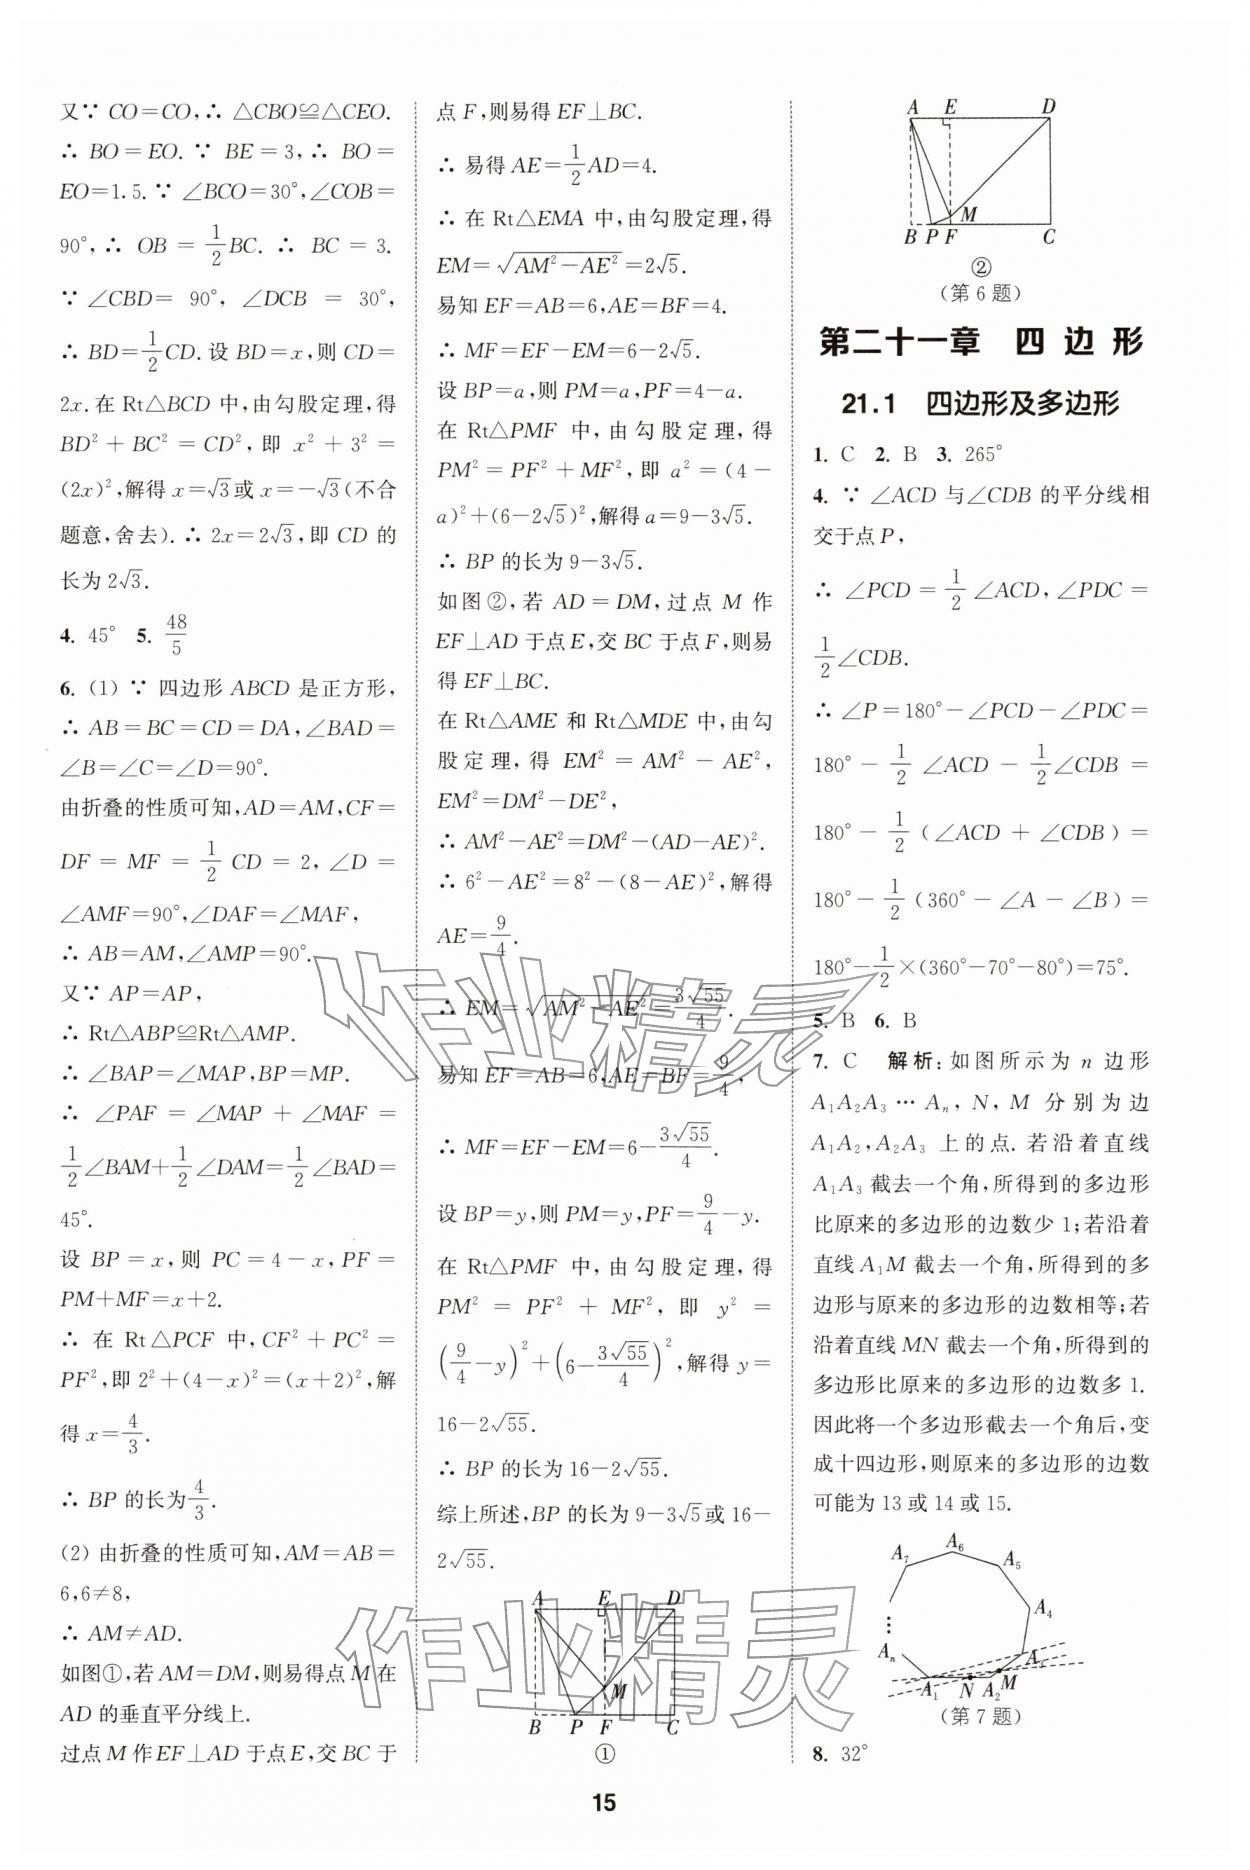 又∵ CO=CO,∴ △CBO≌△CEO.
∴ BO=EO. ∵ BE=3,∴ BO=
EO=1.5. ∵ ∠BCO=30°,∠COB=
90°,∴ OB=1/2BC. ∴ BC=3.
∵ ∠CBD=90°, ∠DCB=30°,
∴ BD=1/2CD. 设 BD=x,则 CD=
2x. 在 Rt△BCD 中,由勾股定理,得
BD²+BC²=CD²,即 x²+3²=
(2x)²,解得 x=√3或 x=-√3(不合
题意,舍去). ∴ 2x=2√3,即 CD 的
长为 2√3.
4. 45° 5. 48/5
6. (1) ∵ 四边形 ABCD 是正方形,
∴ AB=BC=CD=DA,∠BAD=
∠B=∠C=∠D=90°.
由折叠的性质可知,AD=AM,CF=
DF=MF=1/2 CD=2,∠D=
∠AMF=90°,∠DAF=∠MAF,
∴ AB=AM,∠AMP=90°.
又∵ AP=AP,
∴ Rt△ABP≌Rt△AMP.
∴ ∠BAP=∠MAP,BP=MP.
∴ ∠PAF=∠MAP+∠MAF=
1/2∠BAM+1/2∠DAM=1/2∠BAD=
45°.
设 BP=x,则 PC=4-x,PF=
PM+MF=x+2.
∴ 在 Rt△PCF 中,CF²+PC²=
PF²,即 2²+(4-x)²=(x+2)²,解
得 x=4/3.
∴ BP 的长为4/3.
(2) 由折叠的性质可知,AM=AB=
6,6≠8,
∴ AM≠AD.
如图①,若 AM=DM,则易得点 M 在
AD 的垂直平分线上.
过点 M 作 EF⊥AD 于点 E,交 BC 于
点 F,则易得 EF⊥BC.
∴ 易得 AE=1/2AD=4.
∴ 在 Rt△EMA 中,由勾股定理,得
EM=√(AM²-AE²)=2√5.
易知 EF=AB=6,AE=BF=4.
∴ MF=EF-EM=6-2√5.
设 BP=a,则 PM=a,PF=4-a.
在 Rt△PMF 中,由勾股定理,得
PM²=PF²+MF²,即 a²=(4-
a)²+(6-2√5)²,解得 a=9-3√5.
∴ BP 的长为 9-3√5.
如图②,若 AD=DM,过点 M 作
EF⊥AD 于点 E,交 BC 于点 F,则易
得 EF⊥BC.
在 Rt△AME 和 Rt△MDE 中,由勾
股定理,得 EM²=AM²-AE²,
EM²=DM²-DE²,
∴ AM²-AE²=DM²-(AD-AE)².
∴ 6²-AE²=8²-(8-AE)²,解得
AE=9/4.
∴ EM=√(AM²-AE²)=3√55/4.
易知 EF=AB=6,AE=BF=9/4,
∴ MF=EF-EM=6-3√55/4.
设 BP=y,则 PM=y,PF=9/4-y.
在 Rt△PMF 中,由勾股定理,得
PM²=PF²+MF²,即 y²=
(9/4-y)²+(6-3√55/4)²,解得 y=
16-2√55.
∴ BP 的长为 16-2√55.
综上所述,BP 的长为 9-3√5或 16-
2√55.
A E D
M
B P F C
①
A E D
M
B P F C
②
(第 6 题)
第二十一章 四边形
21.1 四边形及多边形
1. C 2. B 3. 265°
4. ∵ ∠ACD 与∠CDB 的平分线相
交于点 P,
∴ ∠PCD=1/2∠ACD,∠PDC=
1/2∠CDB.
∴ ∠P=180°-∠PCD-∠PDC=
180°-1/2∠ACD-1/2∠CDB=
180°-1/2(∠ACD+∠CDB)=
180°-1/2(360°-∠A-∠B)=
180°-1/2×(360°-70°-80°)=75°.
5. B 6. B
7. C 解析:如图所示为 n 边形
A₁A₂A₃…Aₙ,N,M 分别为边
A₁A₂,A₂A₃ 上的点. 若沿着直线
A₁A₃ 截去一个角,所得到的多边形
比原来的多边形的边数少 1;若沿着
直线 A₁M 截去一个角,所得到的多
边形与原来的多边形的边数相等;若
沿着直线 MN 截去一个角,所得到的
多边形比原来的多边形的边数多 1.
因此将一个多边形截去一个角后,变
成十四边形,则原来的多边形的边数
可能为 13 或 14 或 15.
A₇ A₆ A₅
A₄
⋮
Aₙ A₃
A₁ N A₂ M
(第 7 题)
8. 32°
15
作业精灵
作业精灵